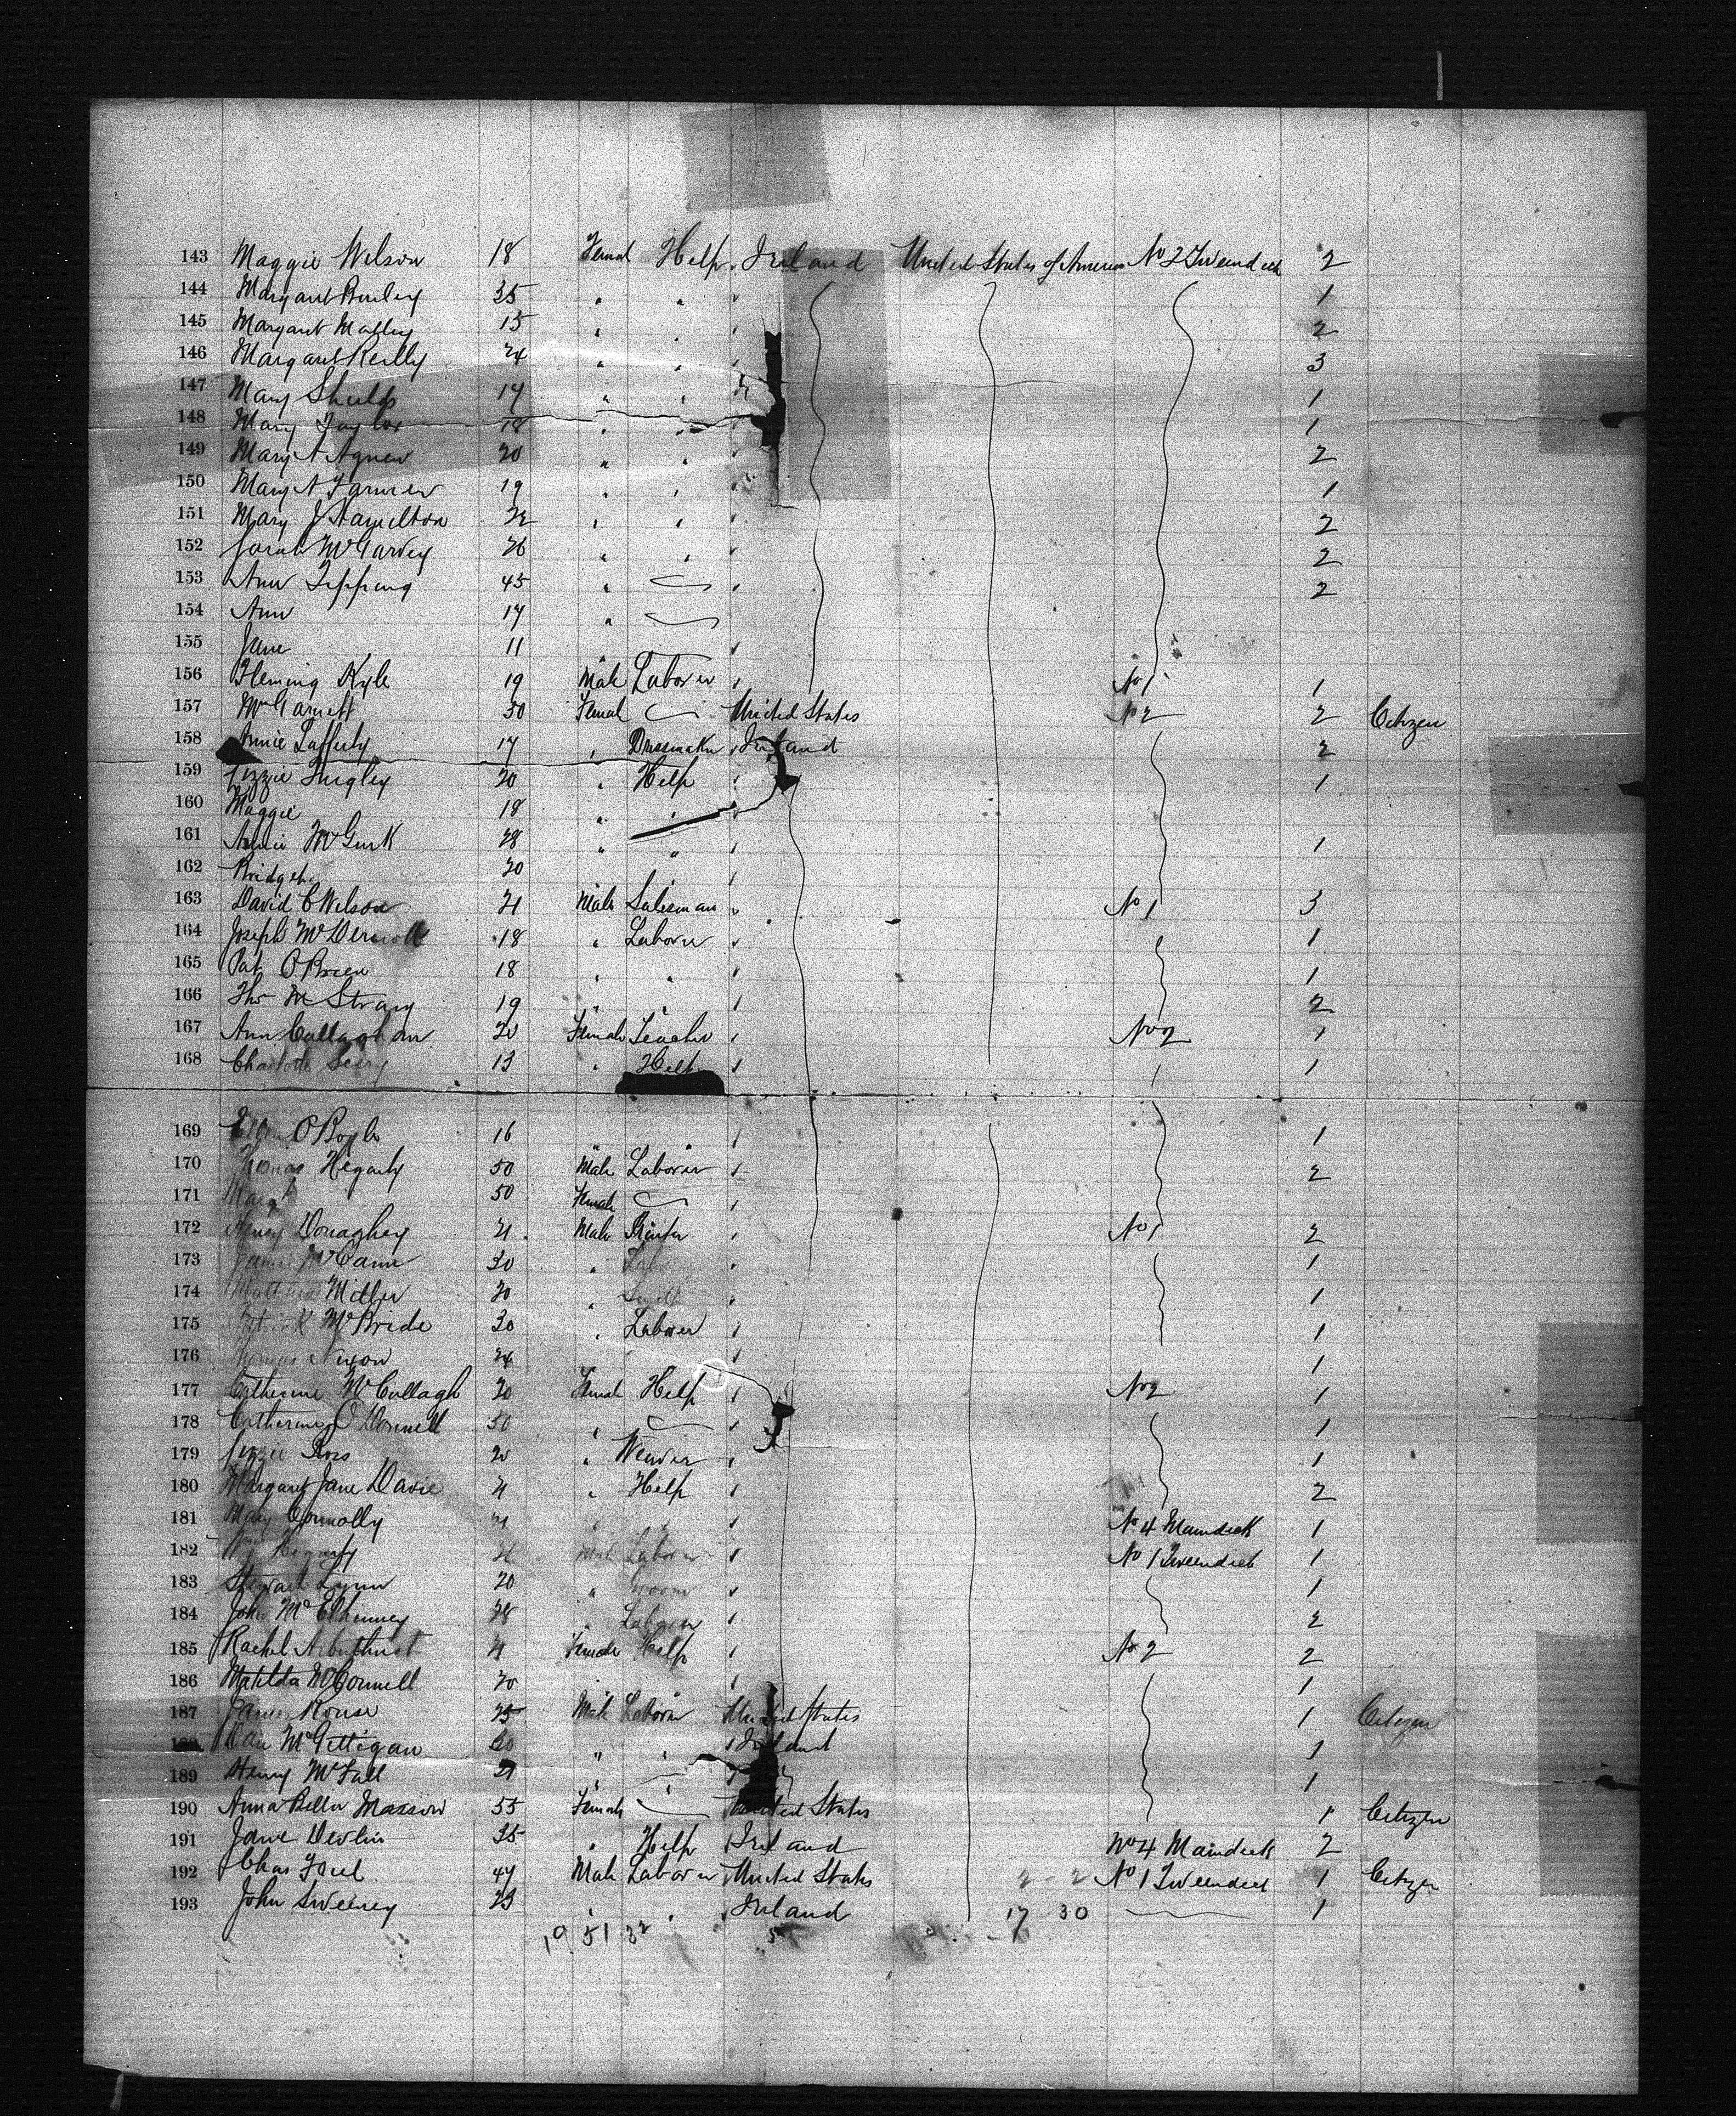 143 Maggie Wilson 18 Femal Help Ireland United States of America No 2 Tweendeck 2
144 Margaret 35 " " 1
145 Margaret 15 " " 2
146 Margaret Reilly 24 " " 3
147 Mary Shields 17 " " 1
148 Mary Taylor 18 " " 1
149 Mary A Agnew 20 " " 2
150 Mary A Farmer 19 " " 1
151 Mary J Hamilton 22 " " 2
152 Sarah McGarvey 26 " " 2
153 Ann Tipping 45 " 2
154 Ann 17 "
155 Jane 11 "
156 Fleming Kyle 19 Male Laborer No 1 1
157 McGarnett 50 Femal United States No 2 2 Citizen
158 Annie Lafferty 17 " Dressmaker Ireland 2
159 Lizzie Quigley 20 " Help 1
160 Maggie 18 " "
161 Annie McGurk 28 " " 1
162 Bridget 20
163 David C Wilson 21 Male Salesman No 1 3
164 Joseph McDermott 18 " Laborer 1
165 Pat O'Brien 18 " " 1
166 Thos 19 " " 2
167 Ann Callaghan 20 Female Teacher No 2 1
168 Charlotte 13 " Help 1
169 Ellen O'Boyle 16 1
170 Thomas Hegarty 50 Male Laborer 2
171 Margt 50 Female
172 Henry Donaghey 21 Male Printer No 1 2
173 James McCann 30 " Labor 1
174 Matthew Miller 20 " Smith 1
175 Patrick McBride 30 " Laborer 1
176 Thomas Nixon 24 " 1
177 Catherine McCullagh 20 Femal Help No 2 1
178 Catherine O'Donnell 50 " 1
179 Lizzie Ross 20 " Weaver 1
180 Margaret Jane Davis 21 " Help 2
181 Mary Connolly 21 " No 4 Maindeck 1
182 Wm Hegarty 21 Male Laborer No 1 Tweendeck 1
183 Stewart Lynn 20 " Groom 1
184 John McElhinney 28 " Laborer 2
185 Rachel Arbuthnot 21 Female Help No 2 2
186 Matilda McConnell 20 " 1
187 James Rouse 25 Male Laborer United States 1 Citizen
Dan McGettigan 20 " " Ireland 1
189 Henry McFall 21 " " 1
190 Anna Bella Masson 55 Female United States 1 Citizen
191 Jane Devlin 35 " Help Ireland No 4 Maindeck 2
192 Chas 47 Male Laborer United States 2 - 2 No 1 Tweendeck 1 Citizen
193 John Sweeney 23 " " Ireland 17 30 1
19 51 32